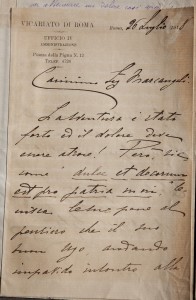 VICARIATO DI ROMA
UFFICIO IV
AMMINISTRAZIONE
Piazza della Pigna N. 12
Roma, 26 Luglio
Carissimo Sig Brascangeli
La ventura è stata
forte ed il dolore deve
essere atroce! Però, sic-
come "dulce et decorum
est pro patria mori,
pensiero che il suo
buon Ugo andando
impavido incontro alla